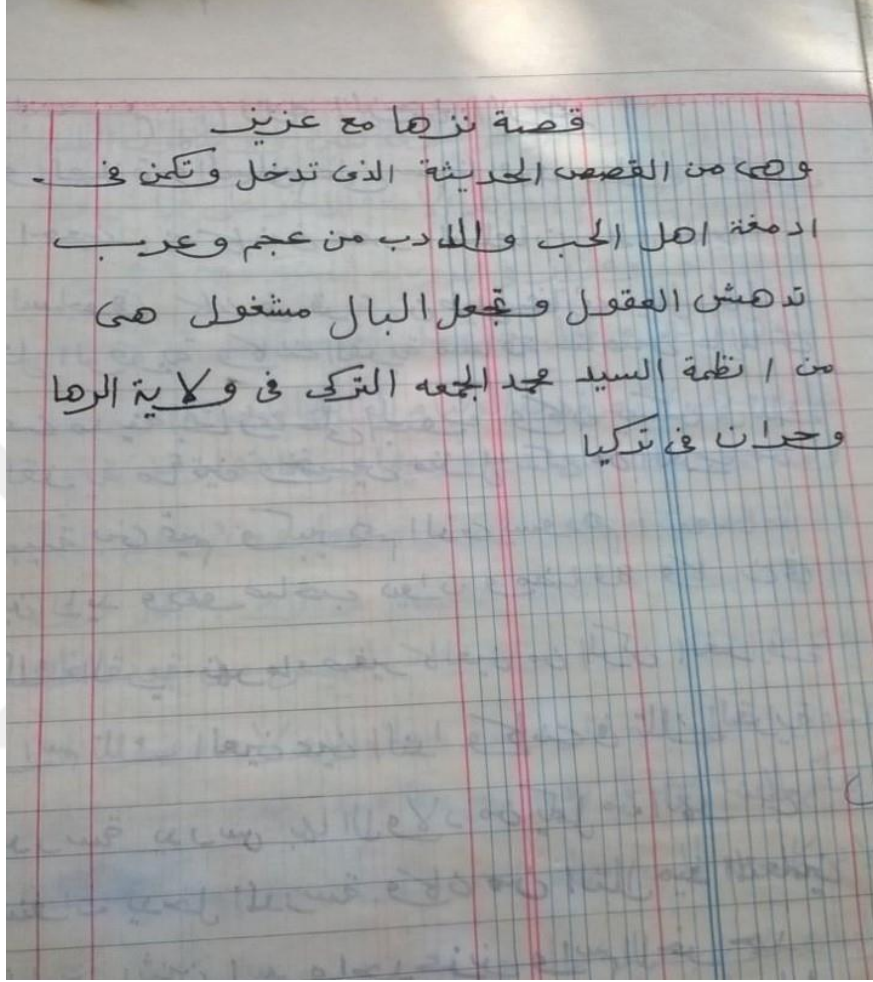 قصة نزها مع عزيز
وهى من القصص الحديثة الذى تدخل وتكمن فى
ادمغة اهل الحب والادب من عجم وعرب
تدهش العقول وتجعل البال مشغول هى
من انظمة السيد محمد الجمعه التركى فى ولاية الرها
وحران فى تركيا